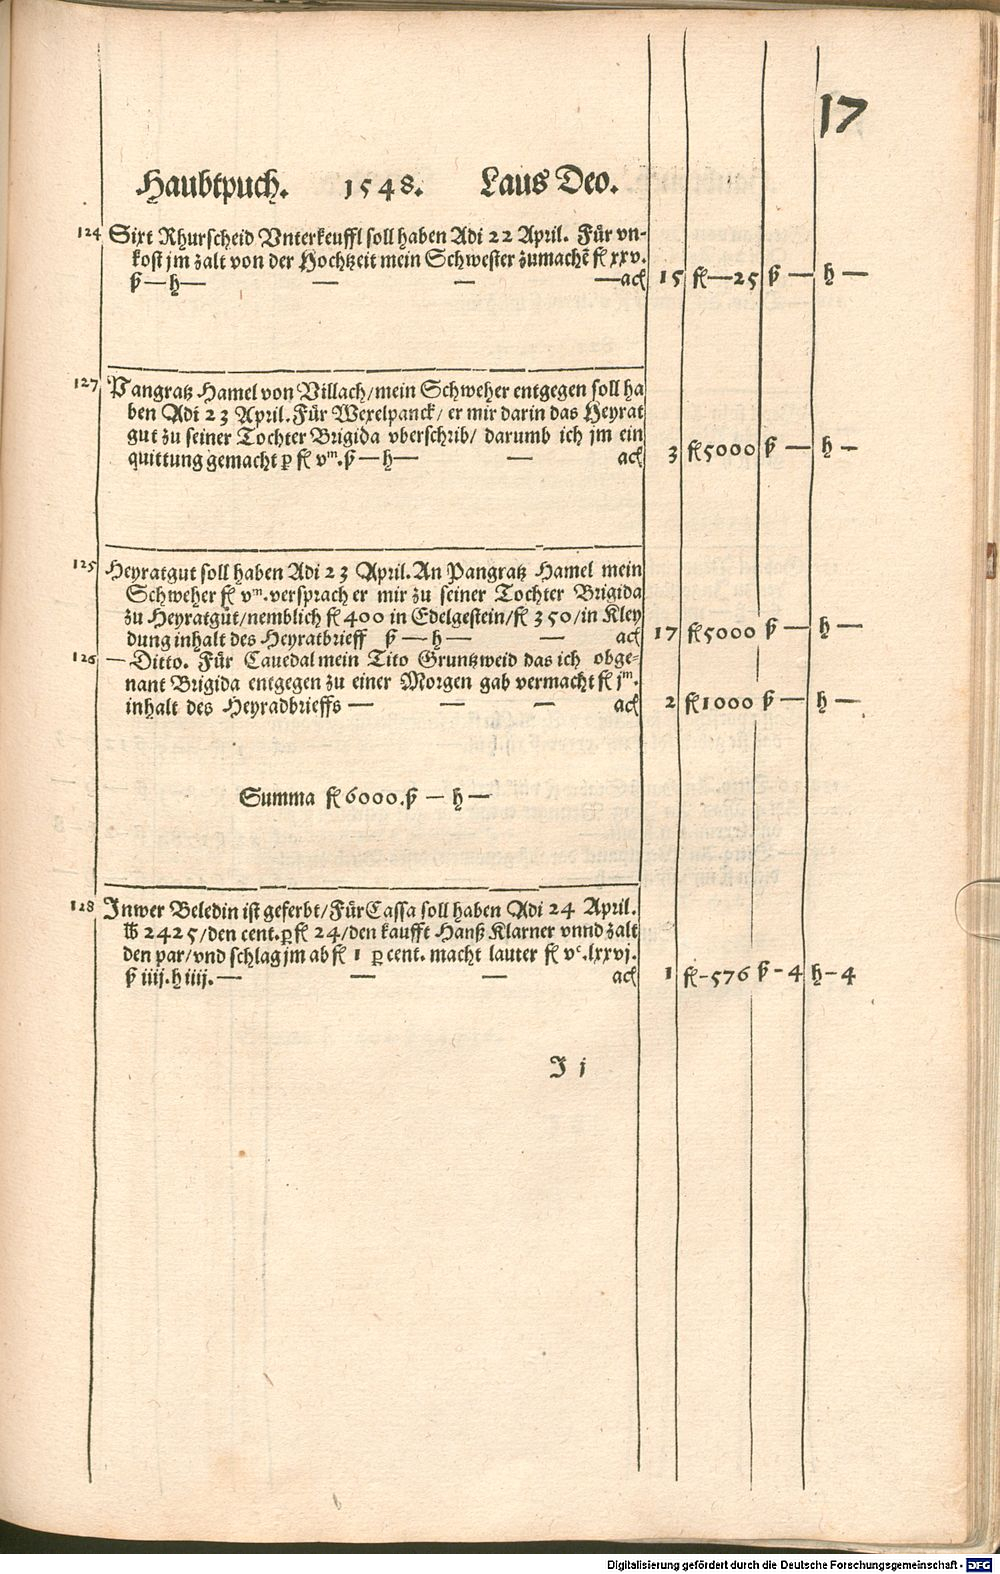 17
Haubtpuch. 1548. Laus Deo.
124 Sixt Rhurscheid Vnterkeuffl soll haben Adi 22 April. Für vn-
kost jm zalt von der Hochtzeit mein Schwester zumachē fl xxv.
ß — h — — — — ac 15 fl — 25 ß — h —
127 Pangratz Hamel von Villach/mein Schweher entgegen soll ha
ben Adi 23 April. Für Wexelpanck/ er mir darin das Heyrat
gut zu seiner Tochter Brigida vberschrib/ darumb ich jm ein
quittung gemacht ꝑ fl vᵐ. ß — h — — ac 3 fl 5000 ß — h —
125 Heyratgut soll haben Adi 23 April. An Pangratz Hamel mein
Schweher fl vᵐ. versprach er mir zu seiner Tochter Brigida
zu Heyratgut/nemblich fl 400 in Edelgestein/fl 350/in Kley
dung inhalt des Heyratbrieff ß — h — — ac 17 fl 5000 ß — h —
126 — Ditto. Für Cauedal mein Tito Gruntzweid das ich obge-
nant Brigida entgegen zu einer Morgen gab vermacht fl jᵐ.
inhalt des Heyradbrieffs — — — ac 2 fl 1000 ß — h —
Summa fl 6000. ß — h —
128 Inwer Beledin ist geferbt/Für Cassa soll haben Adi 24 April.
℔ 2425/den cent. ꝑ fl 24/den kaufft Hanß Klarner vnnd zalt
den par/vnd schlag jm ab fl 1 ꝑ cent. macht lauter fl vᶜ. lxxvj.
ß iiij. h iiij. — — — ac 1 fl - 576 ß - 4 h - 4
J j
Digitalisierung gefördert durch die Deutsche Forschungsgemeinschaft - DFG